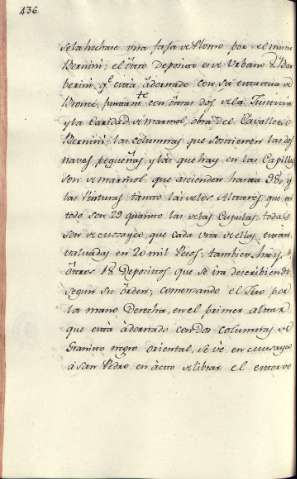 436.
se le hechase una faja de Plomo por el mismo
Bernini; el otro Deposito es de Urbano 8 Bar
berini, q.e está adornado con su estatua de
Bronce, juntam.te con otras dos de la Justicia
y la Caridad de marmol, obra del Cavallero
Bernini: las columnas que sostienen las dos
naves, pequeñas, y las que hay en las Capillas
son de marmol que ascienden hasta 96, y
las Pinturas tanto las de los Altares, que en
todo son 29 quanto las de las Cupulas, todas
son de musayco, que cada una de ellas, están
valuadas en 20 mil Pesos; tambien hay
otros 18 Depositos, que se irá descriviendo
segun su orden; comenzando el Giro por
la mano Derecha, en el primer altar
que está adornado con dos columnas de
Granito negro oriental, se vé en musayco
à San Pedro en acto de librar el